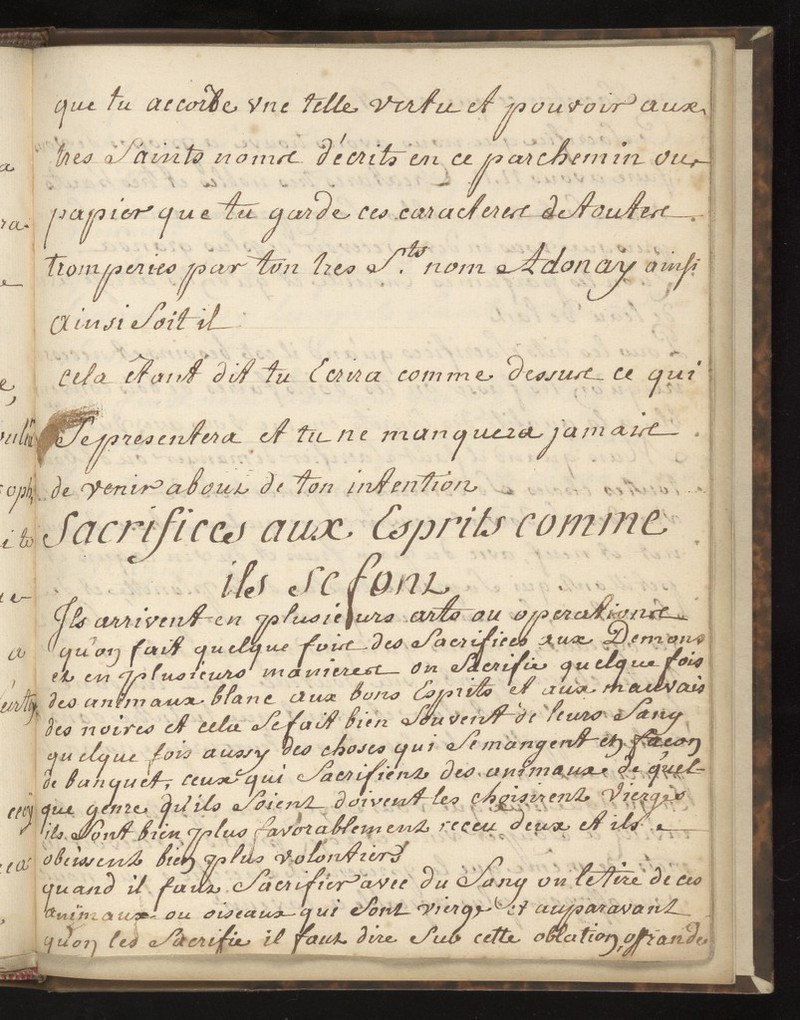 que tu accorde vne telle vertu et pouvoir aux
tres Saints noms décrits en ce parchemin ou
papier que tu garde ces caracteres de toutes
tromperies par ton tres S.ts nom Adonay ainsi
ainsi soit il
cela étant dit tu Ecrira comme dessus ce qui
Se presentera et tu ne manquera jamais
de venir about de ton intention
Sacrifices aux Esprits comme
ils se font
Ils arrivent en plusieurs arts ou operations
qu'on fait quelque fois des Sacrifices aux Demons
et en plusieurs manieres on Sacrifie quelque fois
des animaux blanc aux bons Esprits et aux mauvais
des noires et cela Se fait bien Souvent de leurs Sang
quelque fois aussy des choses qui Se mangent en facon
de banquet, ceux qui Sacrifient des animaux de quel-
que genre qu'ils Soient doivent les choisirent Vierges
ils Sont bien plus favorablement receu deux et ils
obeissent bien plus volontiers
quand il faut Sacrifier avec du Sang on le tire de ces
animaux ou oiseaux qui Sont vierge et auparavant
qu'on les Sacrifie il faut dire Sur cette oblation, offrande